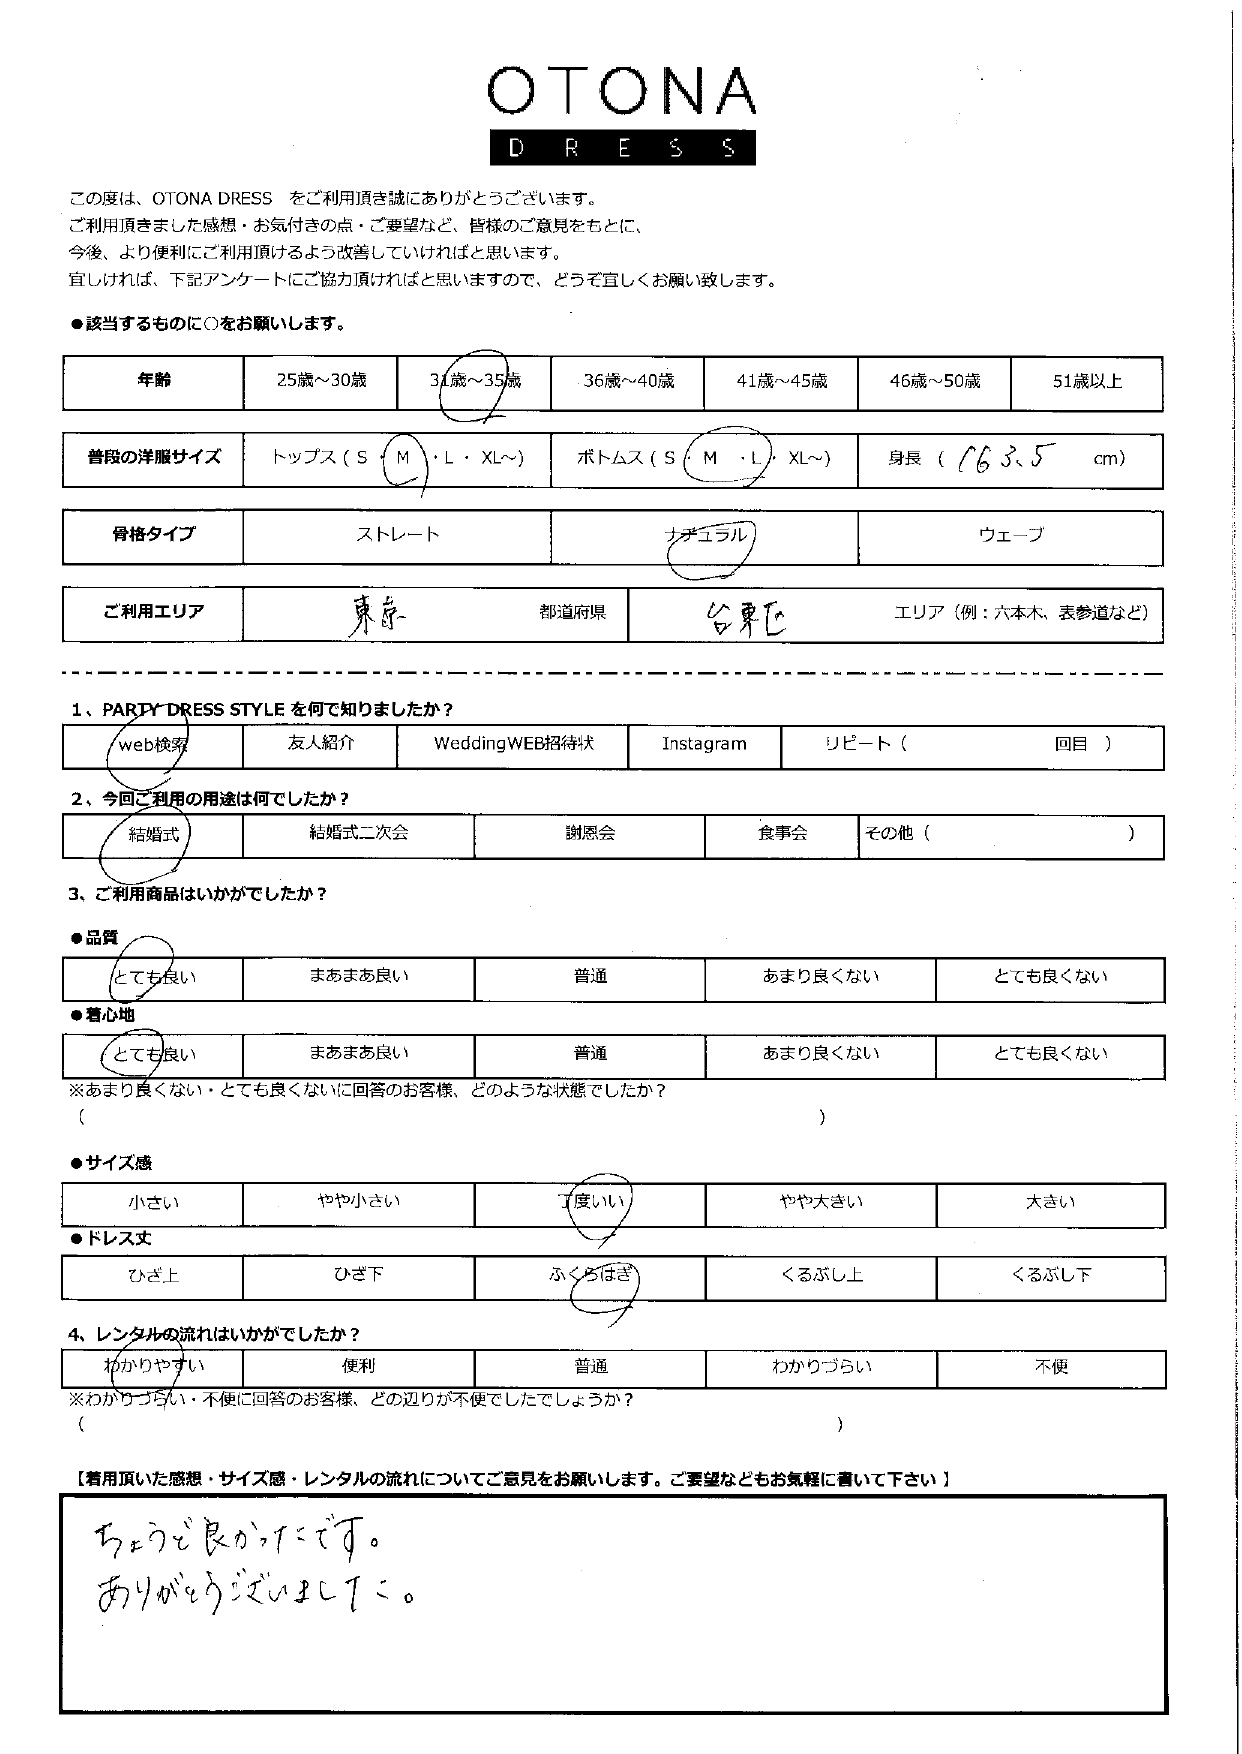 OTONA
DRESS
この度は、OTONA DRESS　をご利用頂き誠にありがとうございます。
ご利用頂きました感想・お気付きの点・ご要望など、皆様のご意見をもとに、
今後、より便利にご利用頂けるよう改善していければと思います。
宜しければ、下記アンケートにご協力頂ければと思いますので、どうぞ宜しくお願い致します。
●該当するものに○をお願いします。
年齢 25歳～30歳 31歳～35歳 36歳～40歳 41歳～45歳 46歳～50歳 51歳以上
普段の洋服サイズ トップス ( S ・ M ・ L ・ XL～) ボトムス ( S ・ M ・ L ・ XL～) 身長 ( 163.5 cm)
骨格タイプ ストレート ナチュラル ウェーブ
ご利用エリア 東京 都道府県 台東区 エリア（例：六本木、表参道など）
1、PARTY DRESS STYLE を何で知りましたか？
web検索 友人紹介 WeddingWEB招待状 Instagram リピート（ 回目 ）
2、今回ご利用の用途は何でしたか？
結婚式 結婚式二次会 謝恩会 食事会 その他（ ）
3、ご利用商品はいかがでしたか？
●品質
とても良い まあまあ良い 普通 あまり良くない とても良くない
●着心地
とても良い まあまあ良い 普通 あまり良くない とても良くない
※あまり良くない・とても良くないに回答のお客様、どのような状態でしたか？
（ ）
●サイズ感
小さい やや小さい 丁度いい やや大きい 大きい
●ドレス丈
ひざ上 ひざ下 ふくらはぎ くるぶし上 くるぶし下
4、レンタルの流れはいかがでしたか？
わかりやすい 便利 普通 わかりづらい 不便
※わかりづらい・不便に回答のお客様、どの辺りが不便でしたでしょうか？
（ ）
【着用頂いた感想・サイズ感・レンタルの流れについてご意見をお願いします。ご要望などもお気軽に書いて下さい】
ちょうど良かったです。
ありがとうございました。